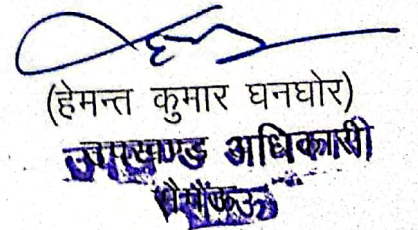 (हेमन्त कुमार घनघोर)
उपखण्ड अधिकारी